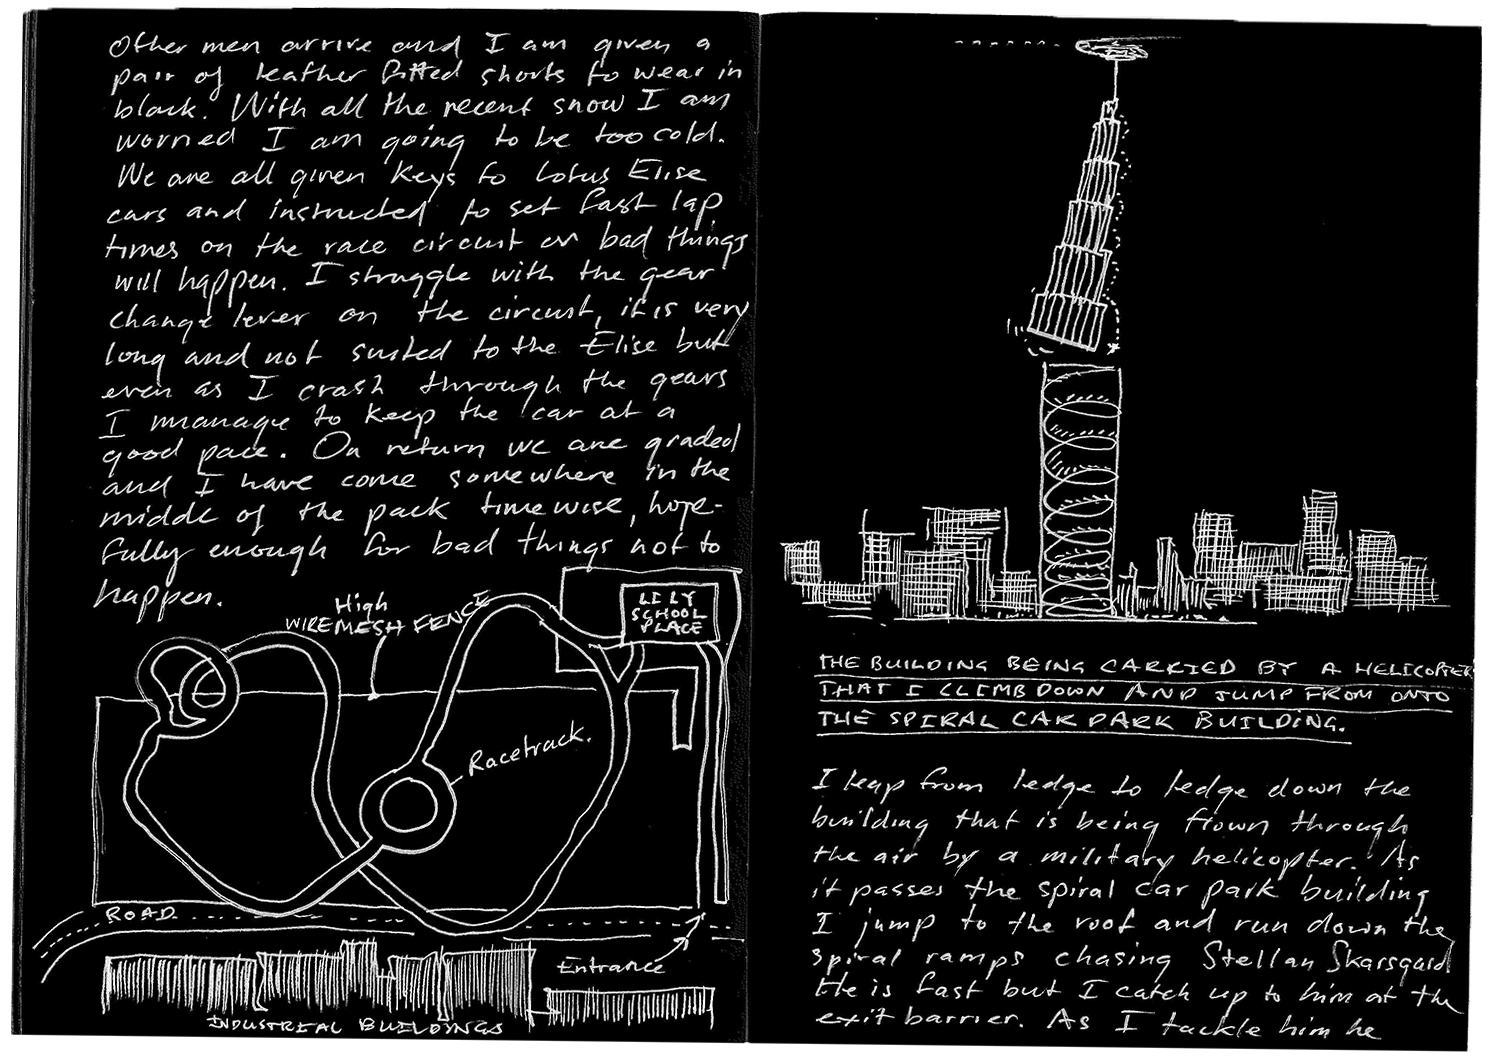 Other men arrive and I am given a
pair of leather fitted shorts to wear in
black. With all the recent snow I am
worried I am going to be too cold.
We are all given keys to Lotus Elise
cars and instructed to set fast lap
times on the race circuit or bad things
will happen. I struggle with the gear
change lever on the circuit, it is very
long and not suited to the Elise but
even as I crash through the gears
I manage to keep the car at a
good pace. On return we are graded
and I have come somewhere in the
middle of the pack timewise, hope-
fully enough for bad things not to
happen.
High
WIREMESH FENCE
LILY
SCHOOL
PLACE
Racetrack.
ROAD
Entrance
INDUSTRIAL BUILDINGS
THE BUILDING BEING CARRIED BY A HELICOPTER
THAT I CLIMB DOWN AND JUMP FROM ONTO
THE SPIRAL CAR PARK BUILDING.
I leap from ledge to ledge down the
building that is being flown through
the air by a military helicopter. As
it passes the spiral car park building
I jump to the roof and run down the
spiral ramps chasing Stellan Skarsgard
He is fast but I catch up to him at the
exit barrier. As I tackle him he